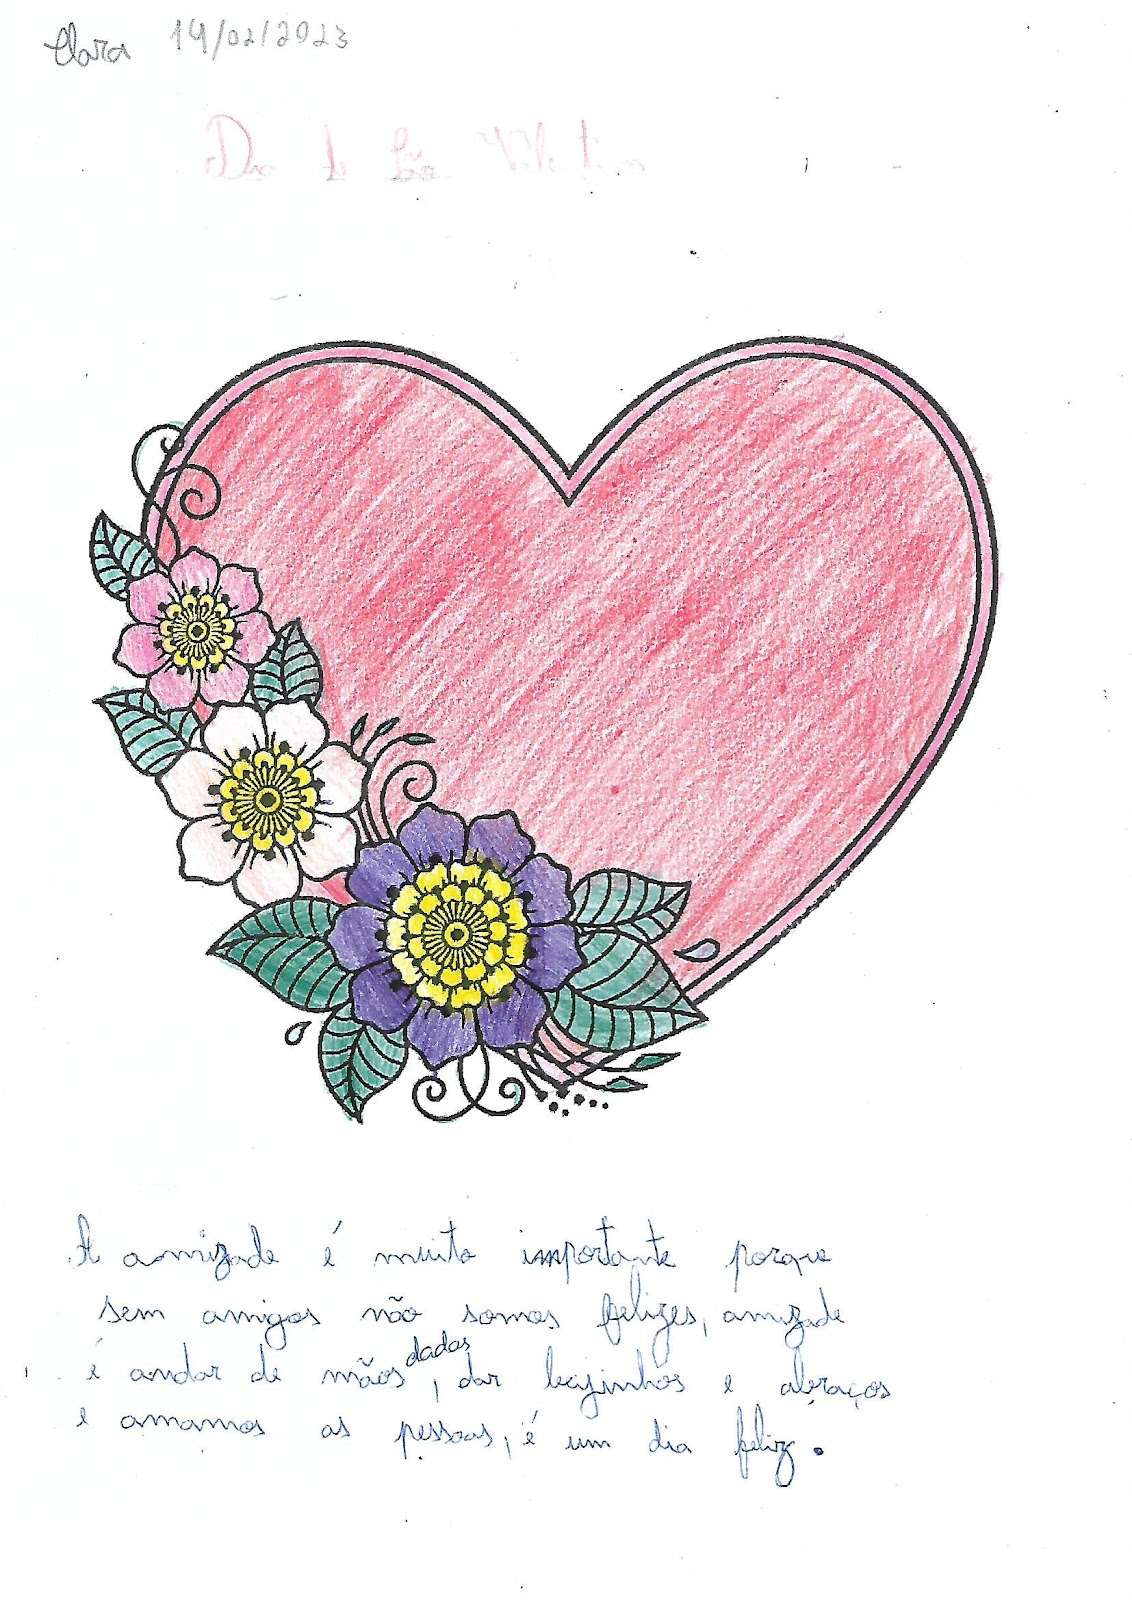 Clara 14/02/2023
Dia de São Valentim
A amizade é muito importante porque
sem amigos não somos felizes, amizade
é andar de mãos dadas, dar beijinhos e abraços
e amamos as pessoas, é um dia feliz.